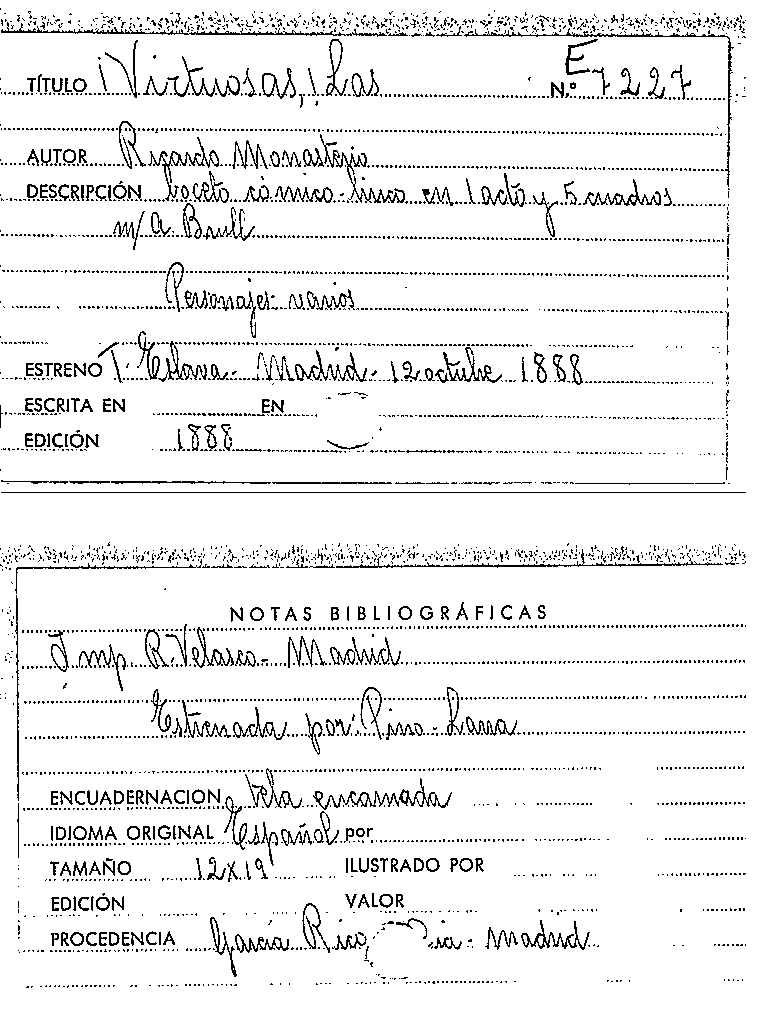 TÍTULO ¡Virtuosas,! Las E
N.º 7227
AUTOR Ricardo Monasterio
DESCRIPCIÓN boceto cómico-lírico en 1 acto y 5 cuadros
m/ A. Brull
Personajes: varios
ESTRENO T. Eslava - Madrid - 12 octubre 1888
ESCRITA EN EN
EDICIÓN 1888
NOTAS BIBLIOGRÁFICAS
Imp. R. Velasco - Madrid
Estrenada por: Pino - Lana
ENCUADERNACION tela encarnada
IDIOMA ORIGINAL Español por
TAMAÑO 12x19 ILUSTRADO POR
EDICIÓN VALOR
PROCEDENCIA García Rico - Madrid